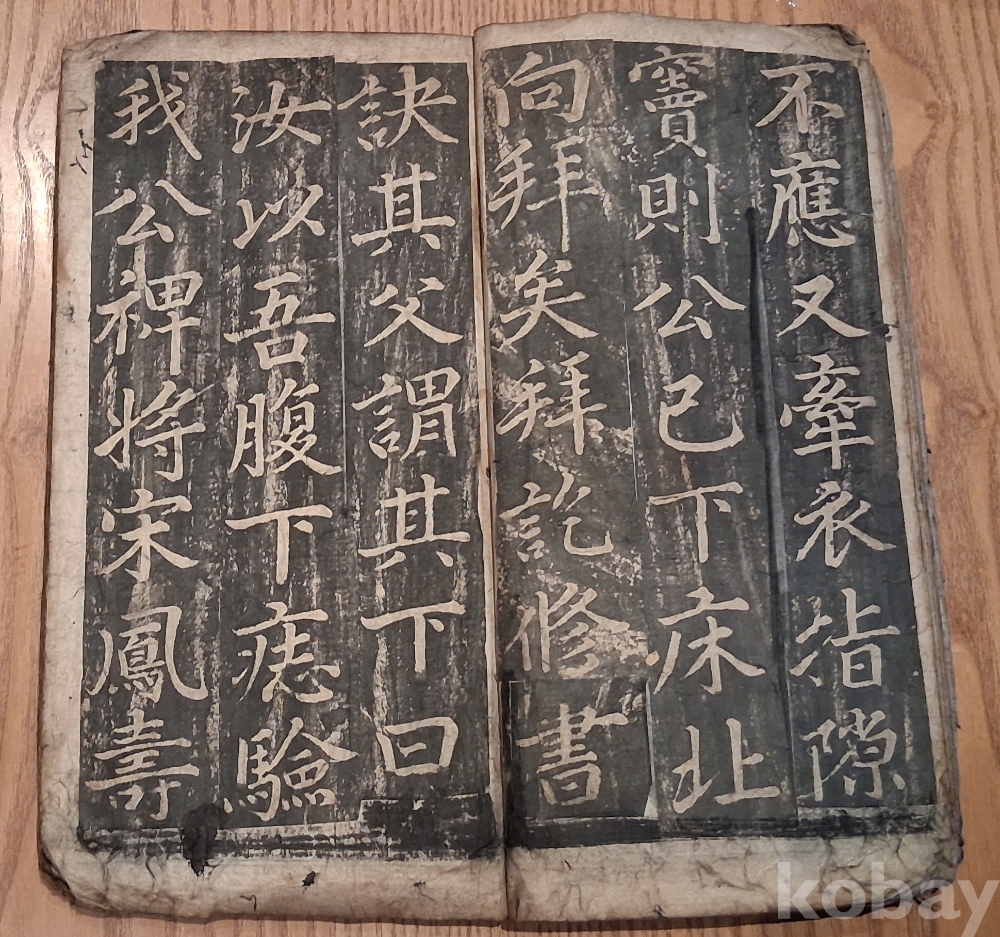 不應又牽衣指隙
竇則公已下床北
向拜矣拜訖修書
訣其父謂其下曰
汝以吾腹下痣驗
我公裨將宋鳳壽
kobay